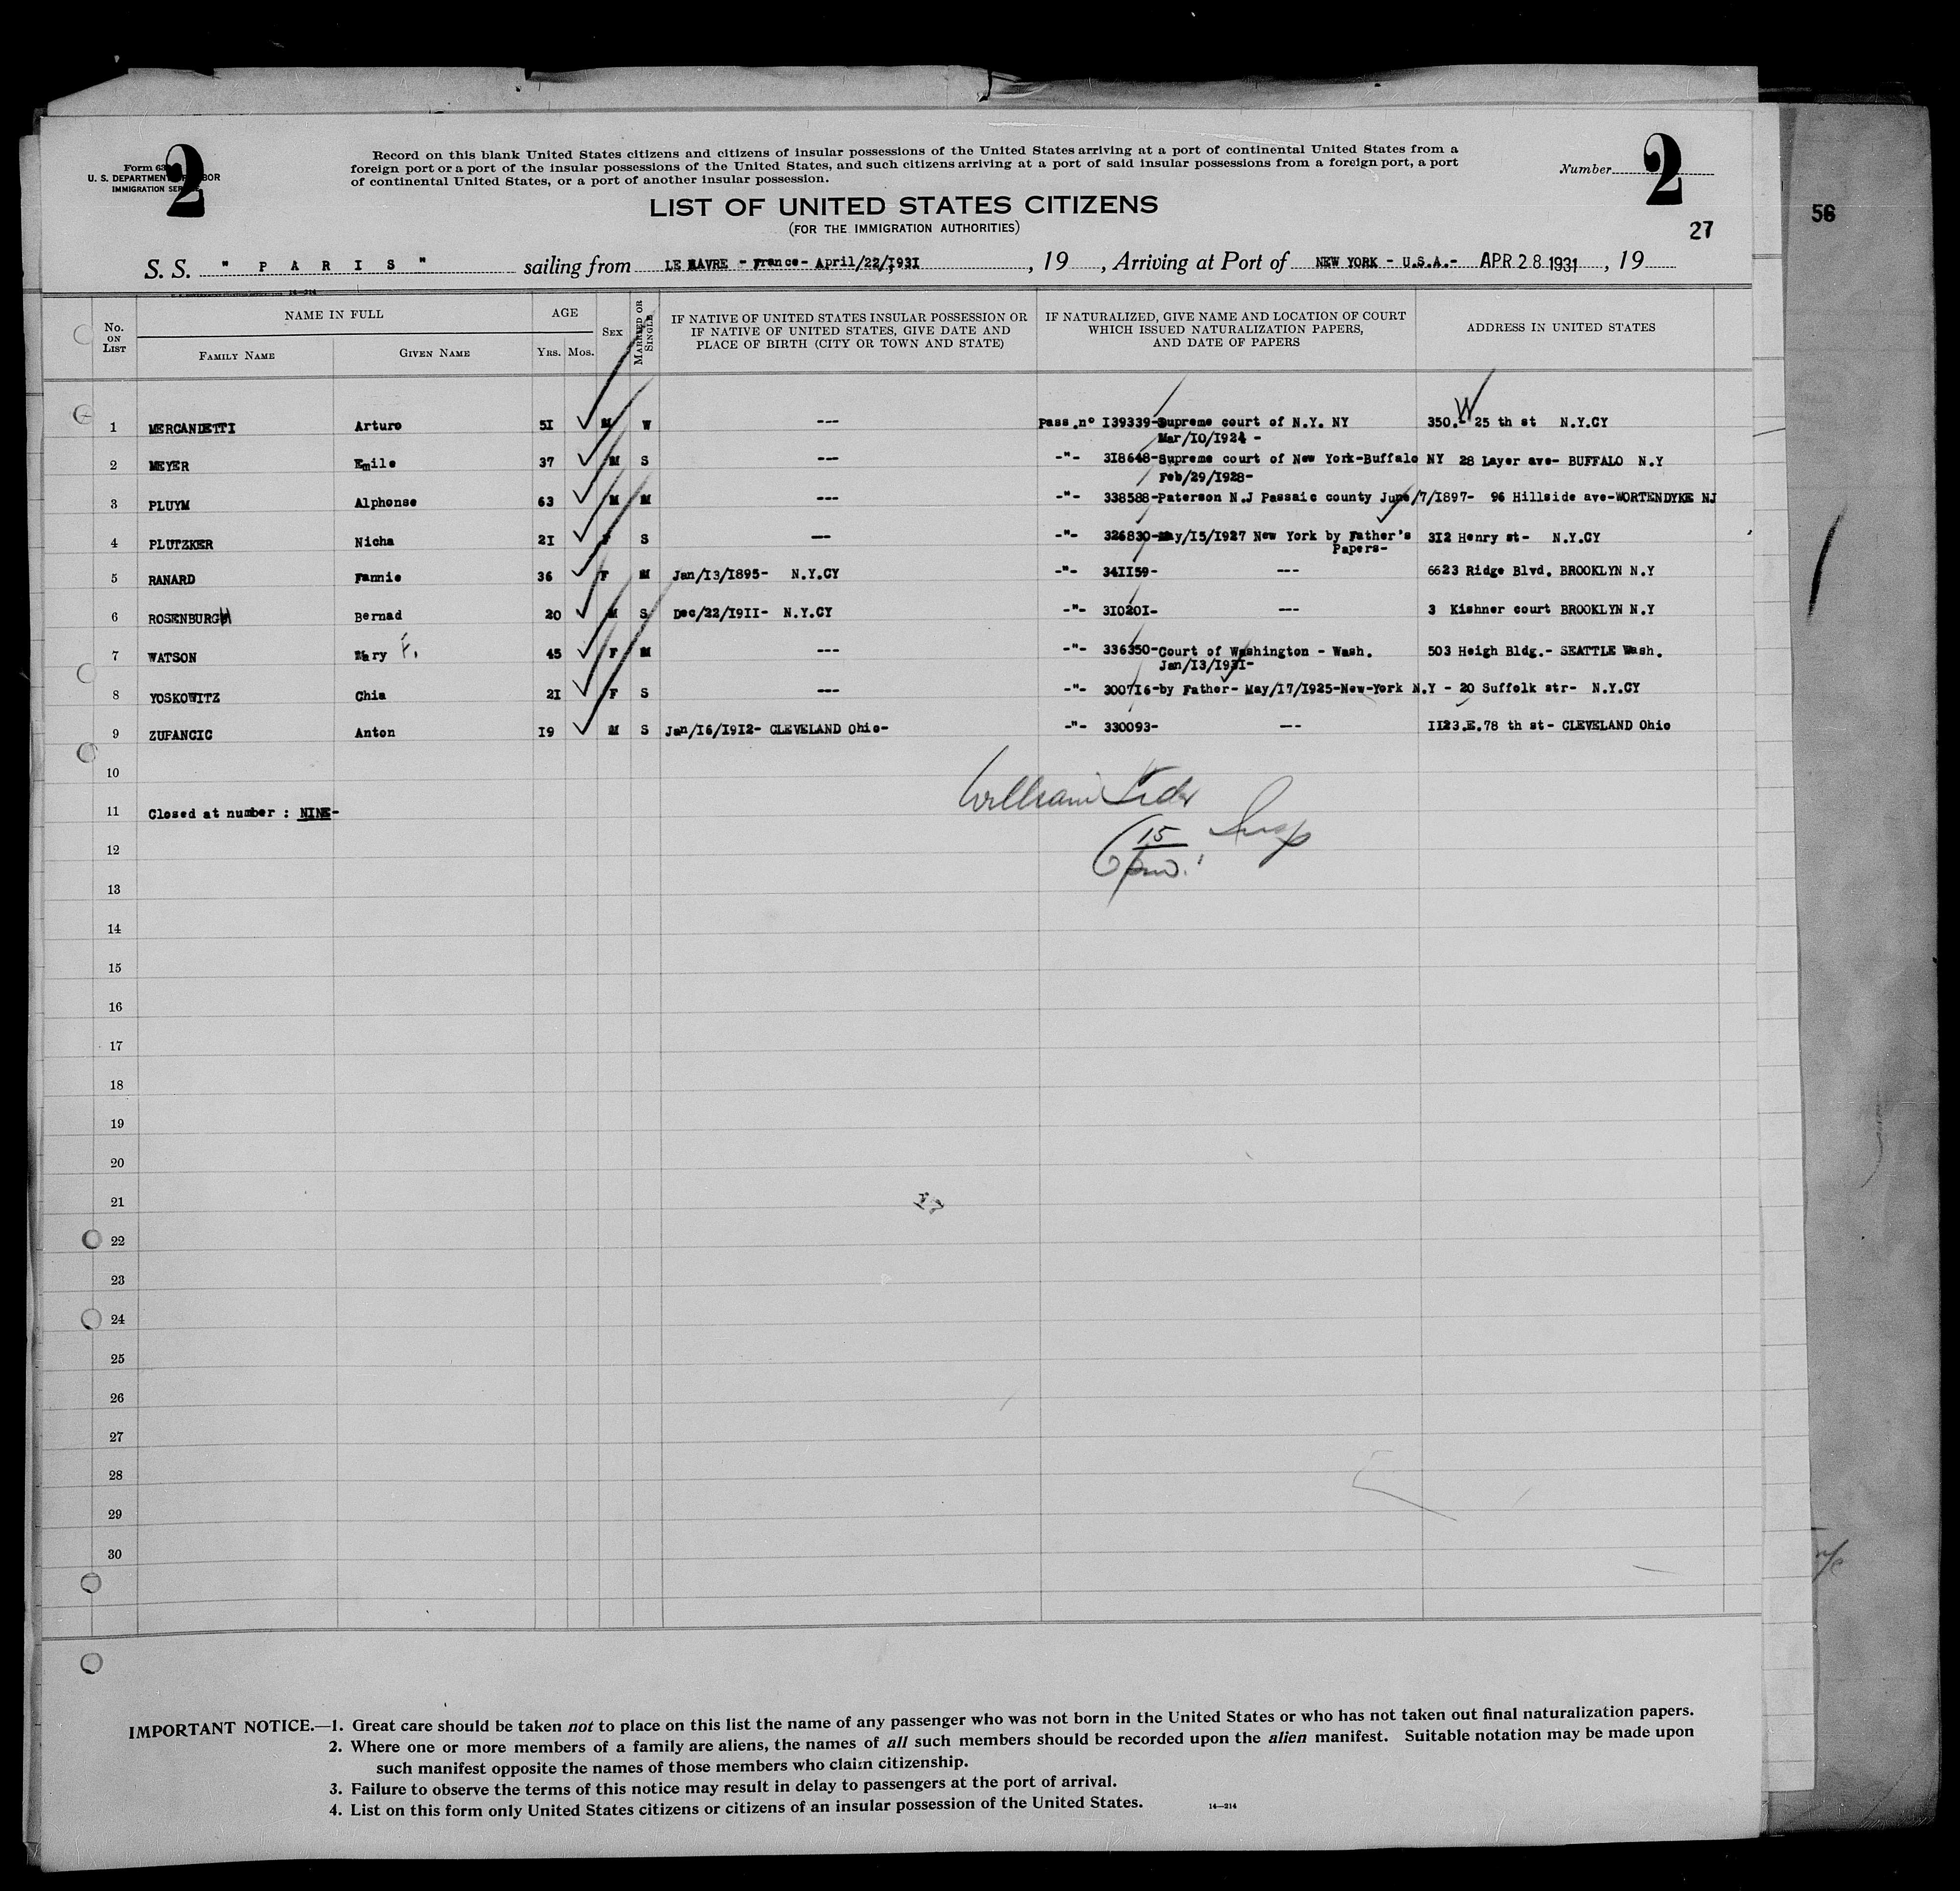 Form 63
U. S. DEPARTMENT OF LABOR
IMMIGRATION SERVICE
2
Record on this blank United States citizens and citizens of insular possessions of the United States arriving at a port of continental United States from a
foreign port or a port of the insular possessions of the United States, and such citizens arriving at a port of said insular possessions from a foreign port, a port
of continental United States, or a port of another insular possession.
Number 2
LIST OF UNITED STATES CITIZENS
(FOR THE IMMIGRATION AUTHORITIES)
27
56
S. S. " P A R I S " sailing from LE HAVRE - France- April/22/I93I , 19 , Arriving at Port of NEW YORK - U.S.A.- APR 28 1931 , 19
No. ON LIST
NAME IN FULL
FAMILY NAME
GIVEN NAME
AGE
YRS. MOS.
SEX
MARRIED OR SINGLE
IF NATIVE OF UNITED STATES INSULAR POSSESSION OR
IF NATIVE OF UNITED STATES, GIVE DATE AND
PLACE OF BIRTH (CITY OR TOWN AND STATE)
IF NATURALIZED, GIVE NAME AND LOCATION OF COURT
WHICH ISSUED NATURALIZATION PAPERS,
AND DATE OF PAPERS
ADDRESS IN UNITED STATES
1 MERCANDETTI Arturo 5I M W --- Pass.nº I39339-Supreme court of N.Y. NY 350.- W 25 th st N.Y.CY
Mar/I0/I924 -
2 MEYER Emile 37 M S --- -"- 3I8648-Supreme court of New York-Buffalo NY 28 Layer ave- BUFFALO N.Y
Feb/29/I928-
3 PLUYM Alphonse 63 M M --- -"- 338588-Paterson N.J Passaic county June/7/I897- 96 Hillside ave-WORTENDYKE NJ
4 PLUTZKER Nicha 2I F S --- -"- 326830-May/I5/I927 New York by Father's 3I2 Henry st- N.Y.CY
Papers-
5 RANARD Fannie 36 F M Jan/I3/I895- N.Y.CY -"- 34II59- --- 6623 Ridge Blvd. BROOKLYN N.Y
6 ROSENBURGH Bernad 20 M S Dec/22/I9II- N.Y.CY -"- 3I020I- --- 3 Kishner court BROOKLYN N.Y
7 WATSON Mary F. 45 F M --- -"- 336350-Court of Washington - Wash. 503 Heigh Bldg.- SEATTLE Wash.
Jan/I3/I93I-
8 YOSKOWITZ Chia 2I F S --- -"- 3007I6-by Father- May/I7/I925-New-York N.Y - 20 Suffolk str- N.Y.CY
9 ZUFANCIC Anton I9 M S Jan/I6/I9I2- CLEVELAND Ohio- -"- 330093- --- II23.E.78 th st- CLEVELAND Ohio
10
William
11 Closed at number : NINE-
Insp
15
12
13
14
15
16
17
18
19
20
21
22
23
24
25
26
27
28
29
30
IMPORTANT NOTICE.—1. Great care should be taken not to place on this list the name of any passenger who was not born in the United States or who has not taken out final naturalization papers.
2. Where one or more members of a family are aliens, the names of all such members should be recorded upon the alien manifest. Suitable notation may be made upon
such manifest opposite the names of those members who claim citizenship.
3. Failure to observe the terms of this notice may result in delay to passengers at the port of arrival.
4. List on this form only United States citizens or citizens of an insular possession of the United States. 14—214